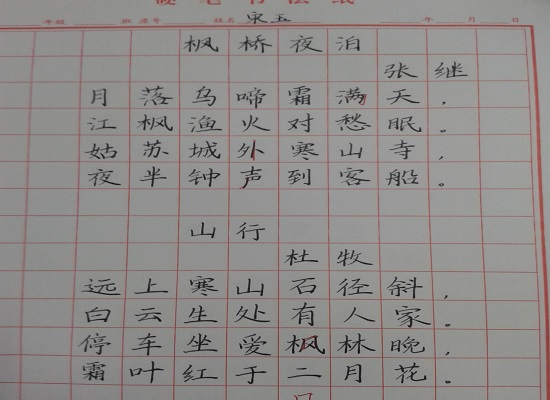 硬笔书法纸
年级 班 座号 姓名 宋玉 年 月 日
枫桥夜泊
张继
月落乌啼霜满天，
江枫渔火对愁眠。
姑苏城外寒山寺，
夜半钟声到客船。
山行
杜牧
远上寒山石径斜，
白云生处有人家。
停车坐爱枫林晚，
霜叶红于二月花。